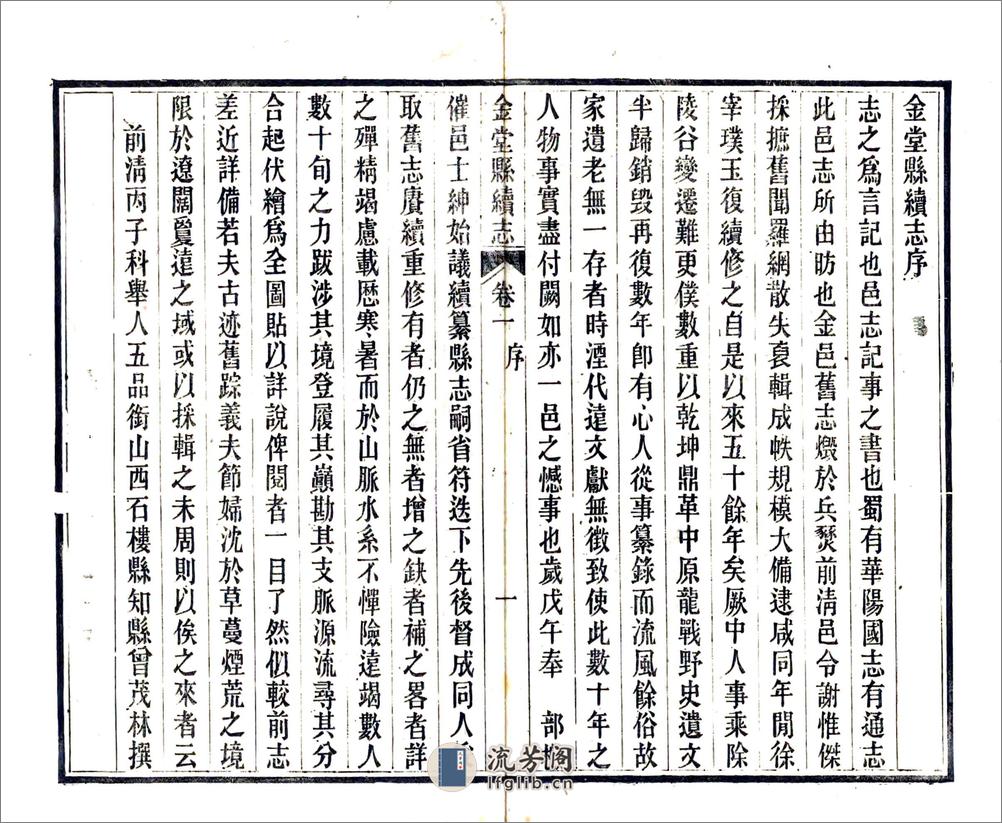 金堂縣續志序
志之爲言記也邑志記事之書也蜀有華陽國志有通志
此邑志所由昉也金邑舊志燬於兵燹前清邑令謝惟傑
採摭舊聞羅網散失裒輯成帙規模大備逮咸同年閒徐
宰璞玉復續修之自是以來五十餘年矣厥中人事乘除
陵谷變遷難更僕數重以乾坤鼎革中原龍戰野史遺文
半歸銷毀再復數年卽有心人從事纂錄而流風餘俗故
家遺老無一存者時湮代遠文獻無徵致使此數十年之
人物事實盡付闕如亦一邑之憾事也歲戊午奉 部
金堂縣續志 卷一 序 一
催邑士紳始議續纂縣志嗣省符迭下先後督成同人
取舊志賡續重修有者仍之無者增之缺者補之畧者詳
之殫精竭慮載歷寒暑而於山脈水系不憚險遠竭數人
數十旬之力跋涉其境登履其巔勘其支脈源流尋其分
合起伏繪爲全圖貼以詳說俾閱者一目了然似較前志
差近詳備若夫古迹舊踪義夫節婦沈於草蔓煙荒之境
限於遼闊敻遠之域或以採輯之未周則以俟之來者云
前清丙子科舉人五品銜山西石樓縣知縣曾茂林撰
流芳閣
lfglib.cn